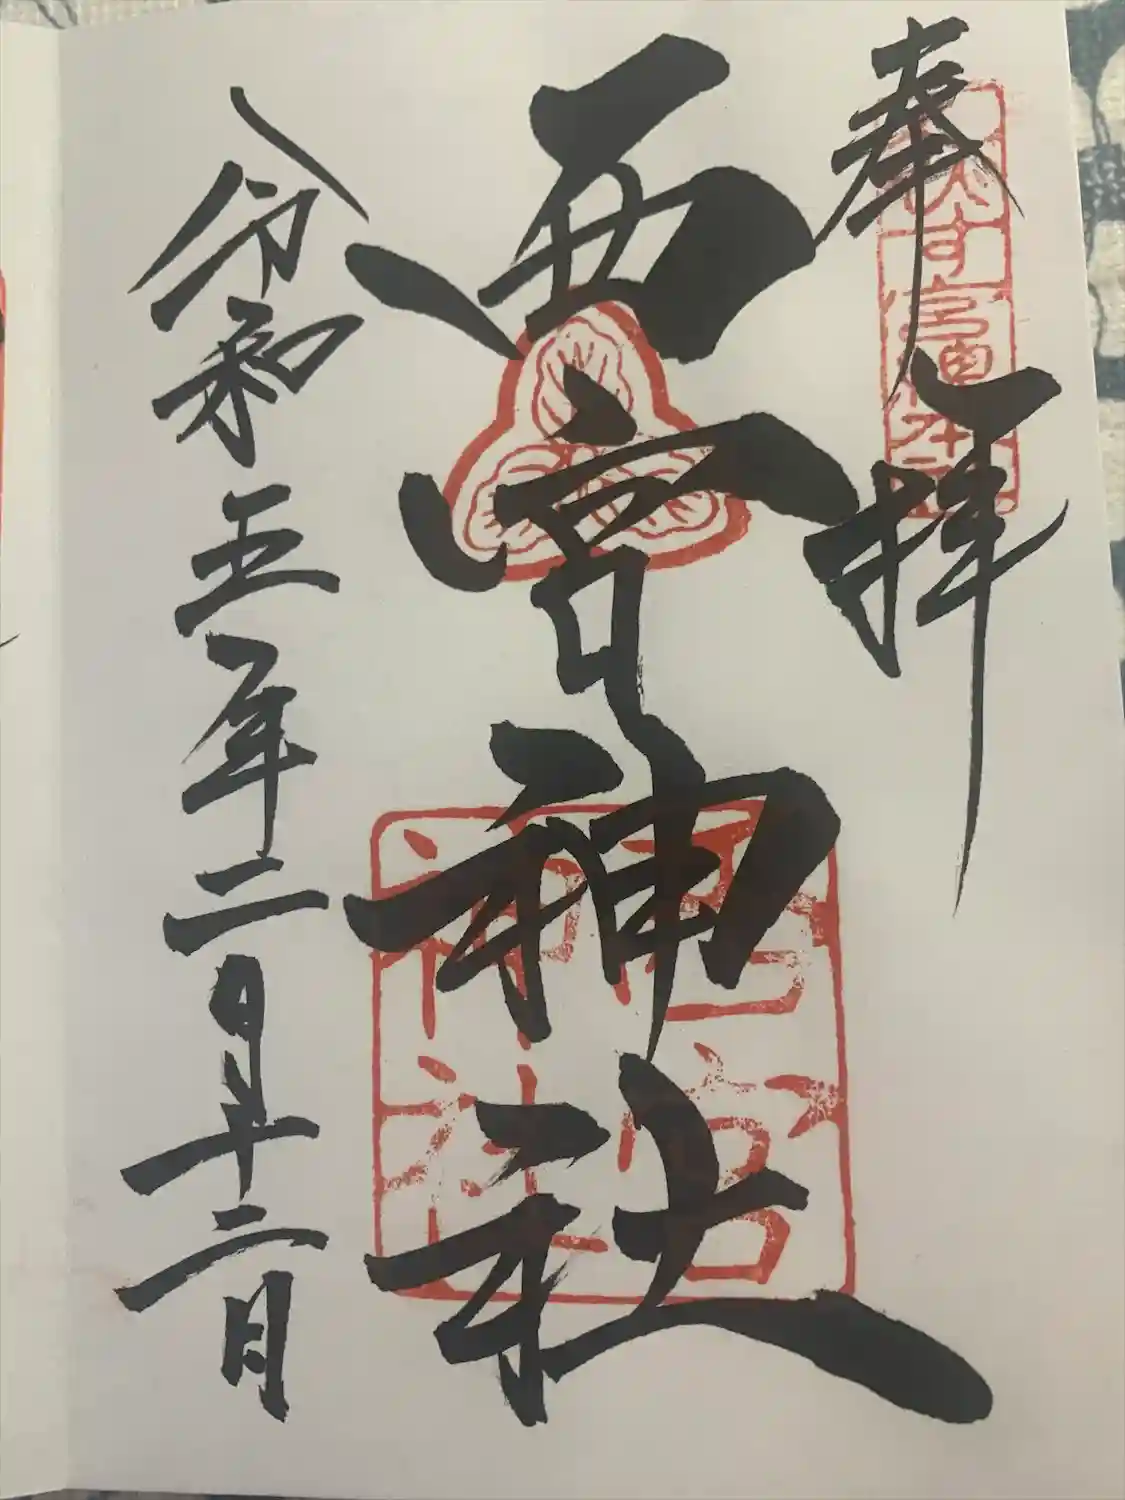 奉拝
西宮神社
西宮神社
令和五年二月十二日